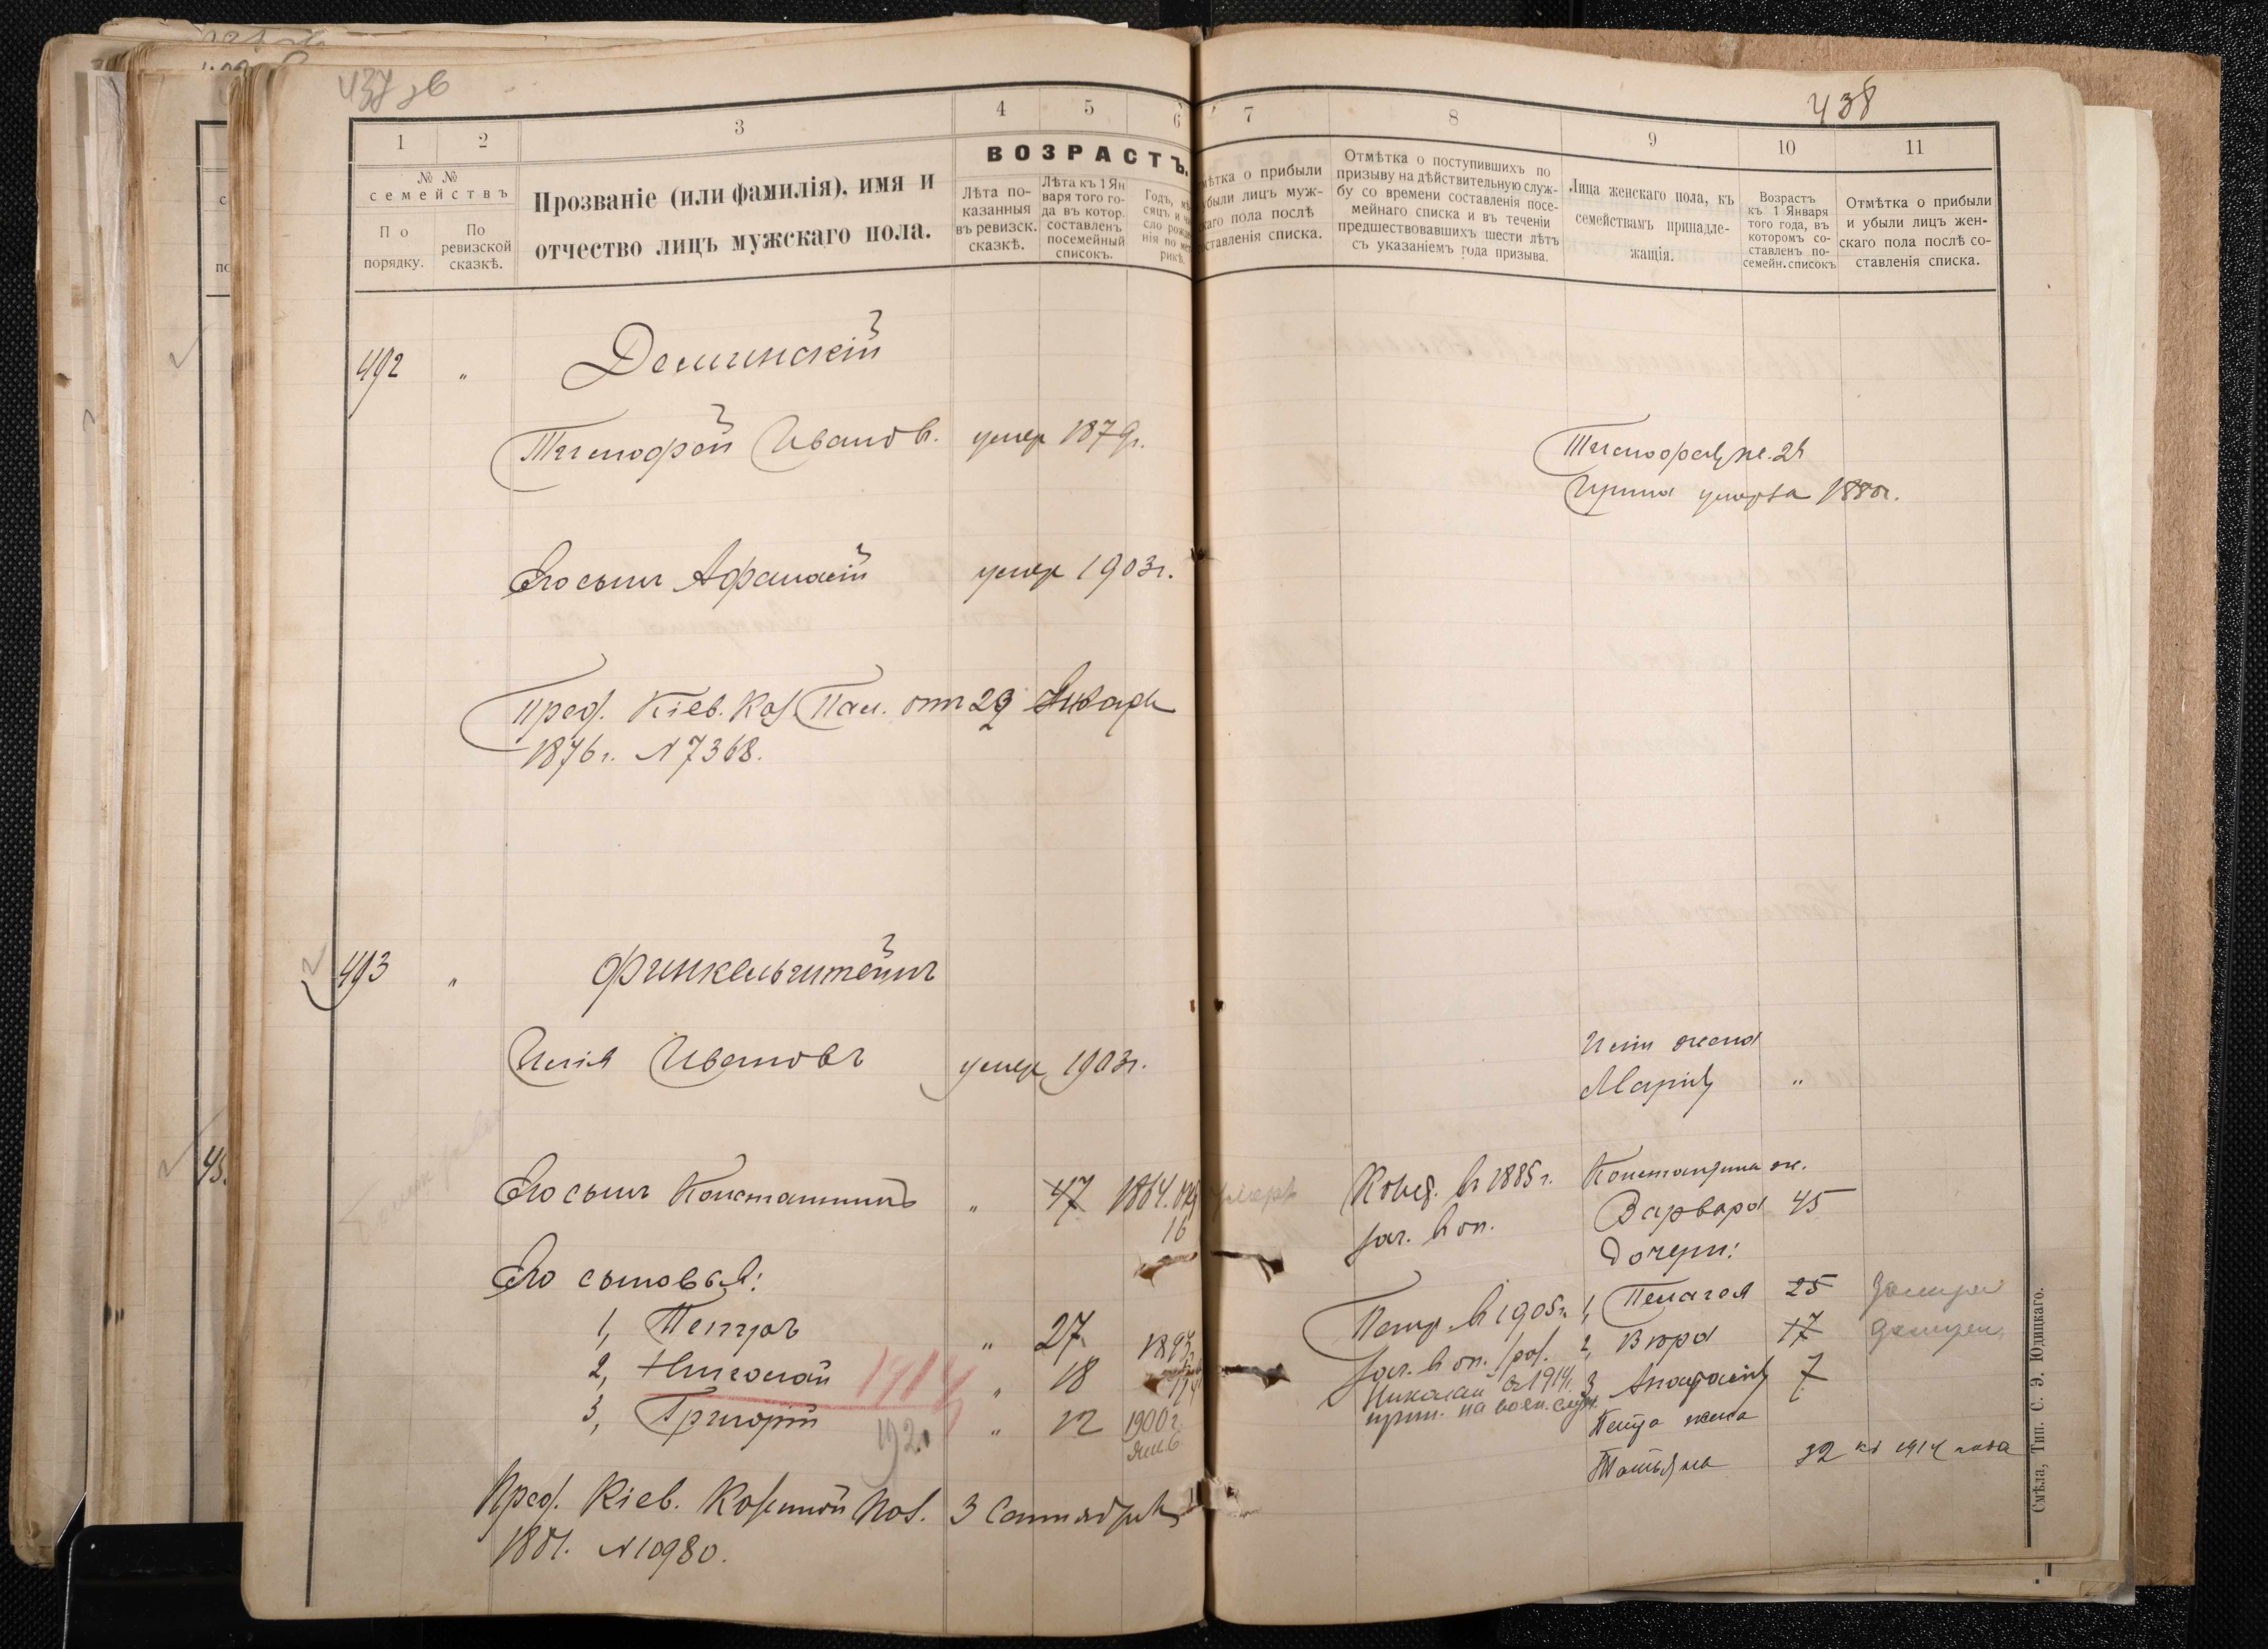 437 об
438
1
2
3
4
5
6
7
8
9
10
11
№ №
семействъ
По порядку.
По ревизской сказкѣ.
Прозваніе (или фамилія), имя и
отчество лицъ мужскаго пола.
ВОЗРАСТЪ.
Лѣта по-
казанныя
въ ревизск.
сказкѣ.
Лѣта къ 1 Ян
варя того го-
да въ котор.
составленъ
посемейный
списокъ.
Годъ, мѣ
сяцъ и чи
сло рожде
нія по мет
рикѣ.
мѣтка о прибыли
убыли лицъ муж-
каго пола послѣ
оставленія списка.
Отмѣтка о поступившихъ по
призыву на дѣйствительную служ-
бу со времени составленія посе-
мейнаго списка и въ теченіи
предшествовавшихъ шести лѣтъ
съ указаніемъ года призыва.
Лица женскаго пола, къ
семействамъ принадле-
жащія.
Возрастъ
къ 1 Января
того года, въ
которомъ со-
ставленъ по-
семейн. списокъ
Отмѣтка о прибыли
и убыли лицъ жен-
скаго пола послѣ со-
ставленія списка.
492 " Деминскій
Тимофей Иванов. умер 1879г.
Тимофея ж. 2я
Ирина умерла 1880г.
Его сынъ Афанасій умер 1903г.
Пред. Кіев. Каз. Пал. отъ 29 Января
1876г. N 7368.
493 " Финкельштейнъ
Илія Ивановъ умер 1903г.
Иліи жена
Марія "
Его сынъ Константинъ " 47 1864.
16
умеръ
Конст. в 1885 г.
зач. в оп.
Константина ж.
Варвара 45
Дочери:
Его сыновья:
1, Петръ " 27
2, Николай 1914 " 18
3, Григорій 1921 " 12 1900 г.
янв.
Петр. в 1905г.
зач. в оп.
Николай в 1914г.
прин. на воен. служ.
1, Пелагея 25 замужем
2, Вѣра 17 замужем
3, Анастасія 7
Петра жена
Татьяна 32 къ 1914 года
Пред. Кіев. Казенной Пал. 3 Сентября
1881. N 10980.
Смѣла, Тип. С. Э. Юдицкаго.